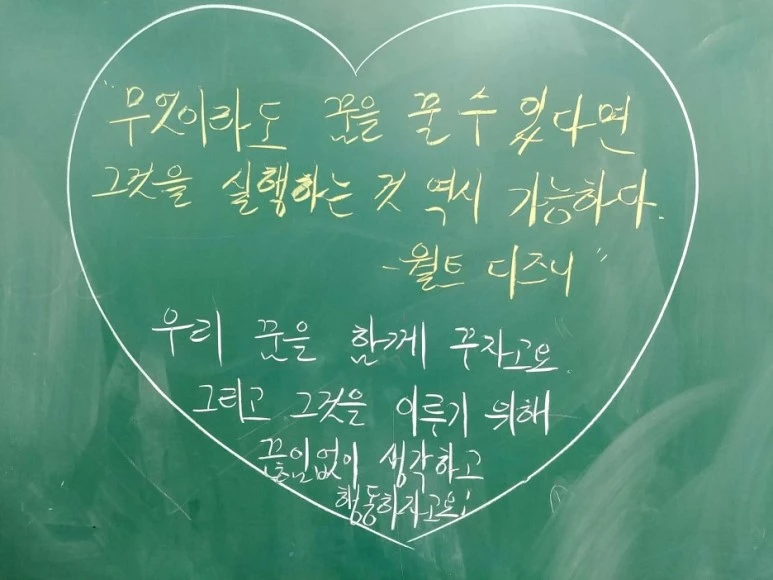 "무엇이라도 꿈을 꿀 수 있다면
그것을 실행하는 것 역시 가능하다.
-월트 디즈니"
우리 꿈을 함께 꾸자고요
그리고 그것을 이루기 위해
끊임없이 생각하고
행동하자고요!